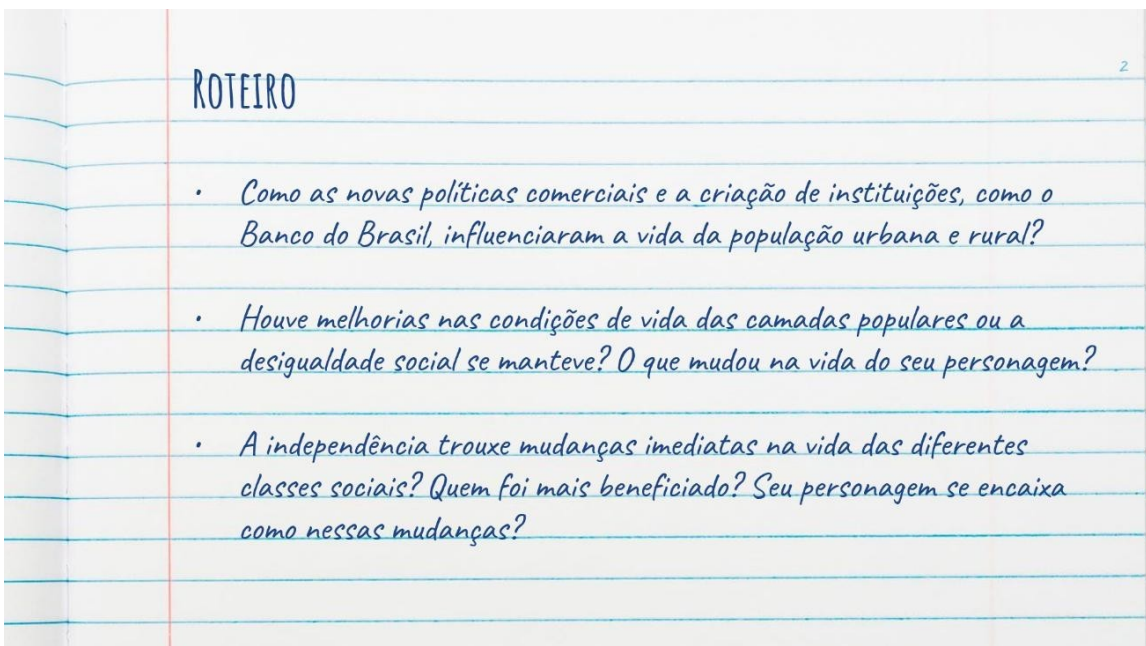 2
ROTEIRO
• Como as novas políticas comerciais e a criação de instituições, como o
Banco do Brasil, influenciaram a vida da população urbana e rural?
• Houve melhorias nas condições de vida das camadas populares ou a
desigualdade social se manteve? O que mudou na vida do seu personagem?
• A independência trouxe mudanças imediatas na vida das diferentes
classes sociais? Quem foi mais beneficiado? Seu personagem se encaixa
como nessas mudanças?